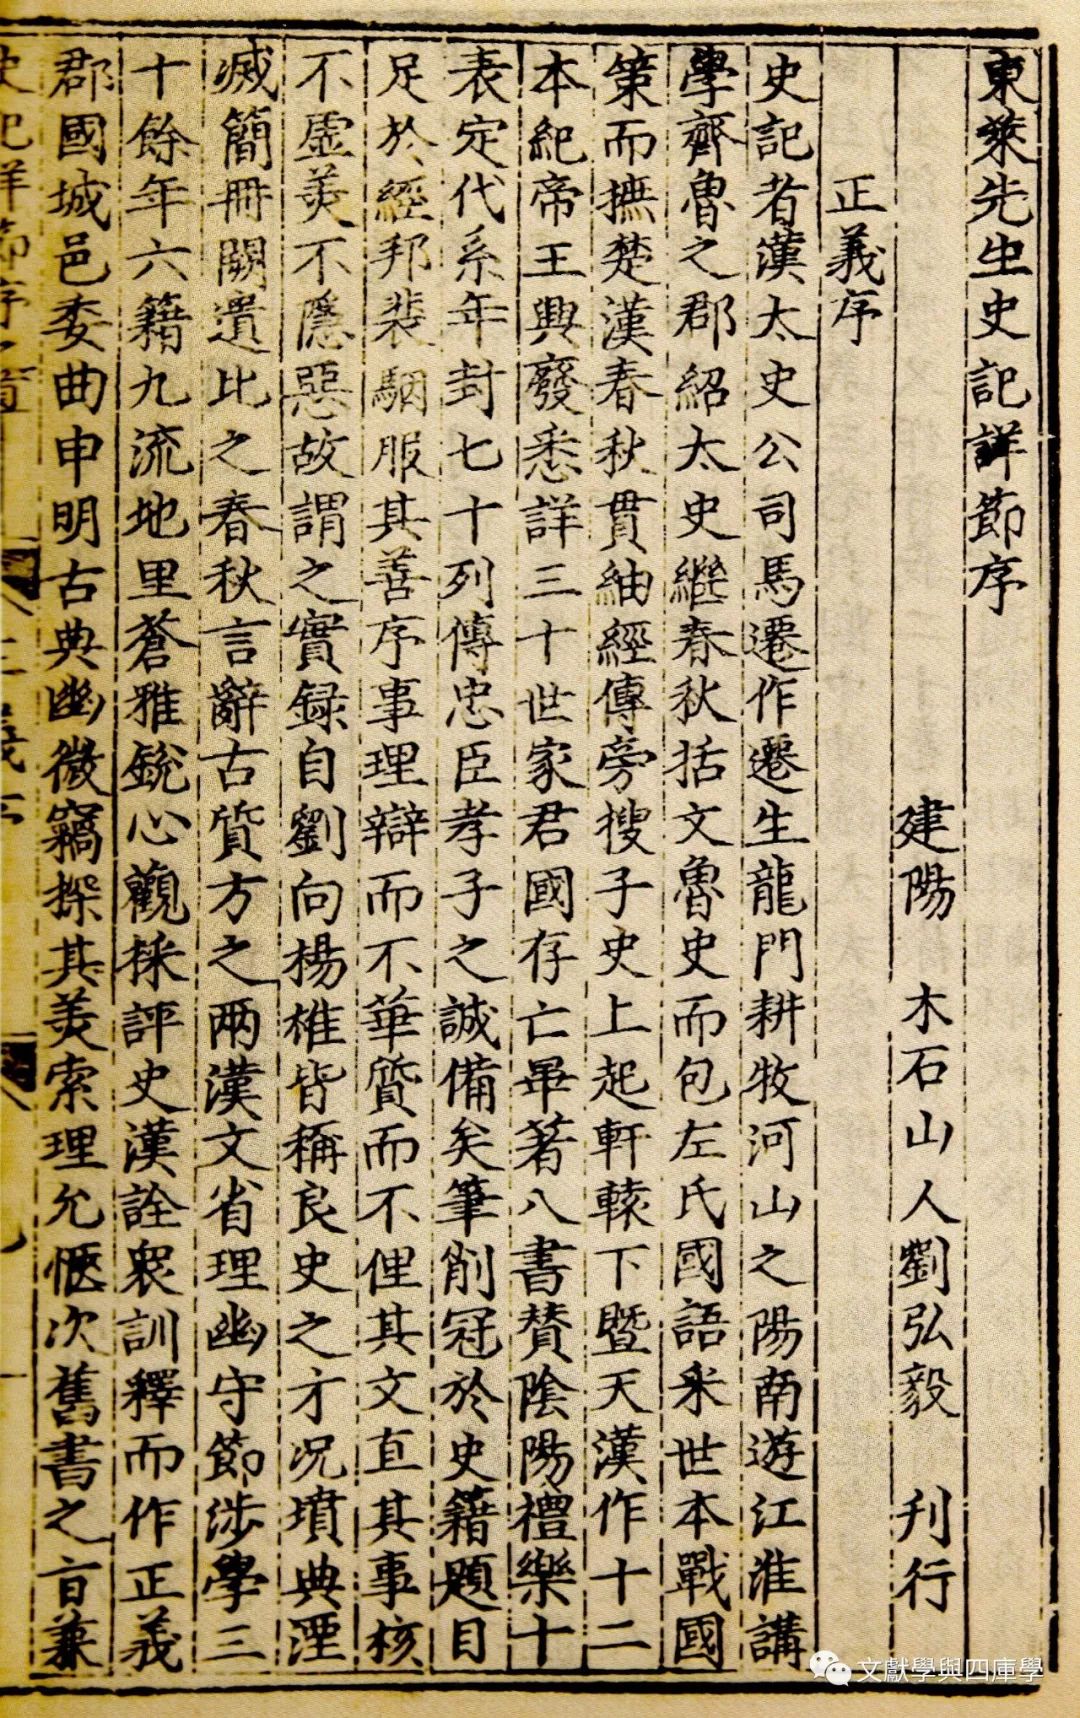 東萊先生史記詳節序
建陽 木石山人劉弘毅 刊行
正義序
史記者漢太史公司馬遷作遷生龍門耕牧河山之陽南遊江淮講
學齊魯之郡紹太史繼春秋括文魯史而包左氏國語采世本戰國
策而摭楚漢春秋貫紬經傳旁搜子史上起軒轅下暨天漢作十二
本紀帝王興廢悉詳三十世家君國存亡畢著八書贊陰陽禮樂十
表定代系年封七十列傳忠臣孝子之誠備矣筆削冠於史籍題目
足於經邦裴駰服其善序事理辯而不華質而不俚其文直其事核
不虛美不隱惡故謂之實録自劉向楊雄皆稱良史之才况墳典湮
滅簡冊闕遺比之春秋言辭古質方之兩漢文省理幽守節涉學三
十餘年六籍九流地里蒼雅銳心觀採評史漢詮衆訓釋而作正義
郡國城邑委曲申明古典幽微竊探其美索理允愜次舊書之旨兼
史記詳節序 正義序
文獻學與四庫學